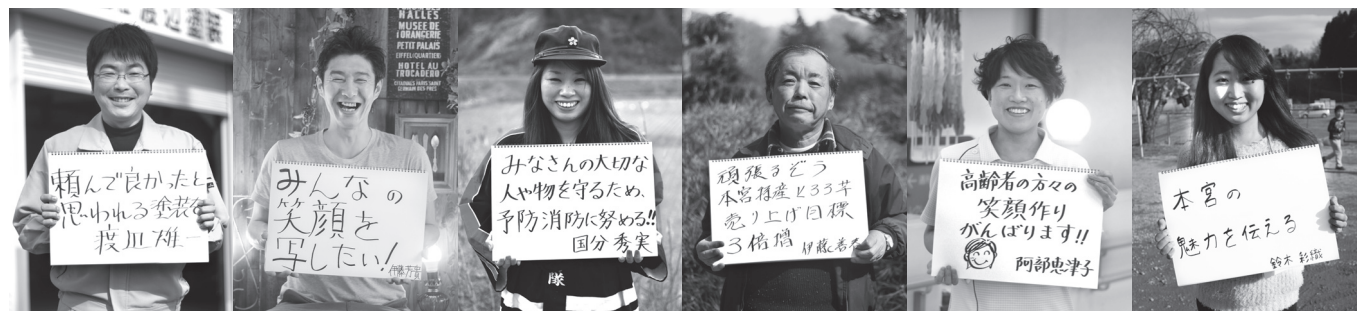 塗装
頼んで良かったと
思われる塗装を
雄一
HALLES
MUSEE DE
L'ORANGERIE
PETIT PALAIS
EIFFEL(QUARTIER)
HOTEL AU
TROCADERO
みんなの
笑顔を
写したい!
伊藤
みなさんの大切な
人や物を守るため、
予防消防に努める!!
国分 秀実
隊
頑張るぞう
本宮特産とろろ芋
売り上げ目標
3倍増 伊藤善
高齢者の方々の
笑顔作り
がんばります!!
阿部恵津子
本宮の
魅力を伝える
鈴木 彩織